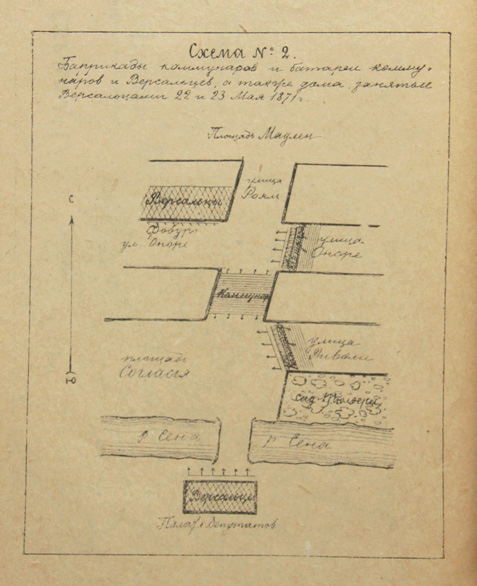 Схема № 2.
Баррикады коммунаров и батареи комму-
наров и Версальцев, а также дома, занятые
Версальцами 22 и 23 Мая 1871 г.
Площадь Мадлен
улица
Роял
Версальцы
Фобург
ул. Оноре
улица
Оноре
С
Коммунар
улица
Риволи
площадь
Согласия
Ю
сад Тюльери
р. Сена
р. Сена
Версальцы
Палат. Депутатов